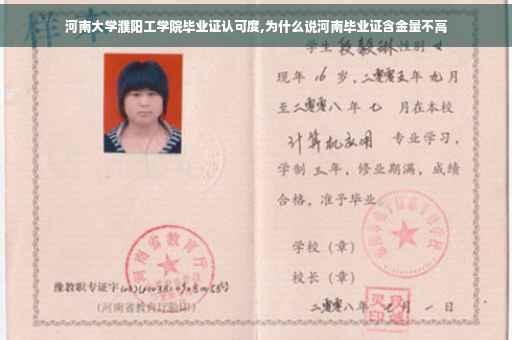 样本
河南大学濮阳工学院毕业证认可度,为什么说河南毕业证含金量不高
学生 段毅琳 性别 女
现年 16 岁，二零零五年 九月
至二零零八年 七 月在本校
计算机应用 专业学习，
学制 三 年，修业期满，成绩
合格，准予毕业
学校（章）
校长（章）
河南省教育厅
豫教职专证字
（河南省教育厅验印）
二零零八年 七 月 一 日